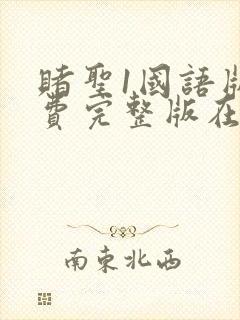 睹聖1國語版
費完整版在
南東北西